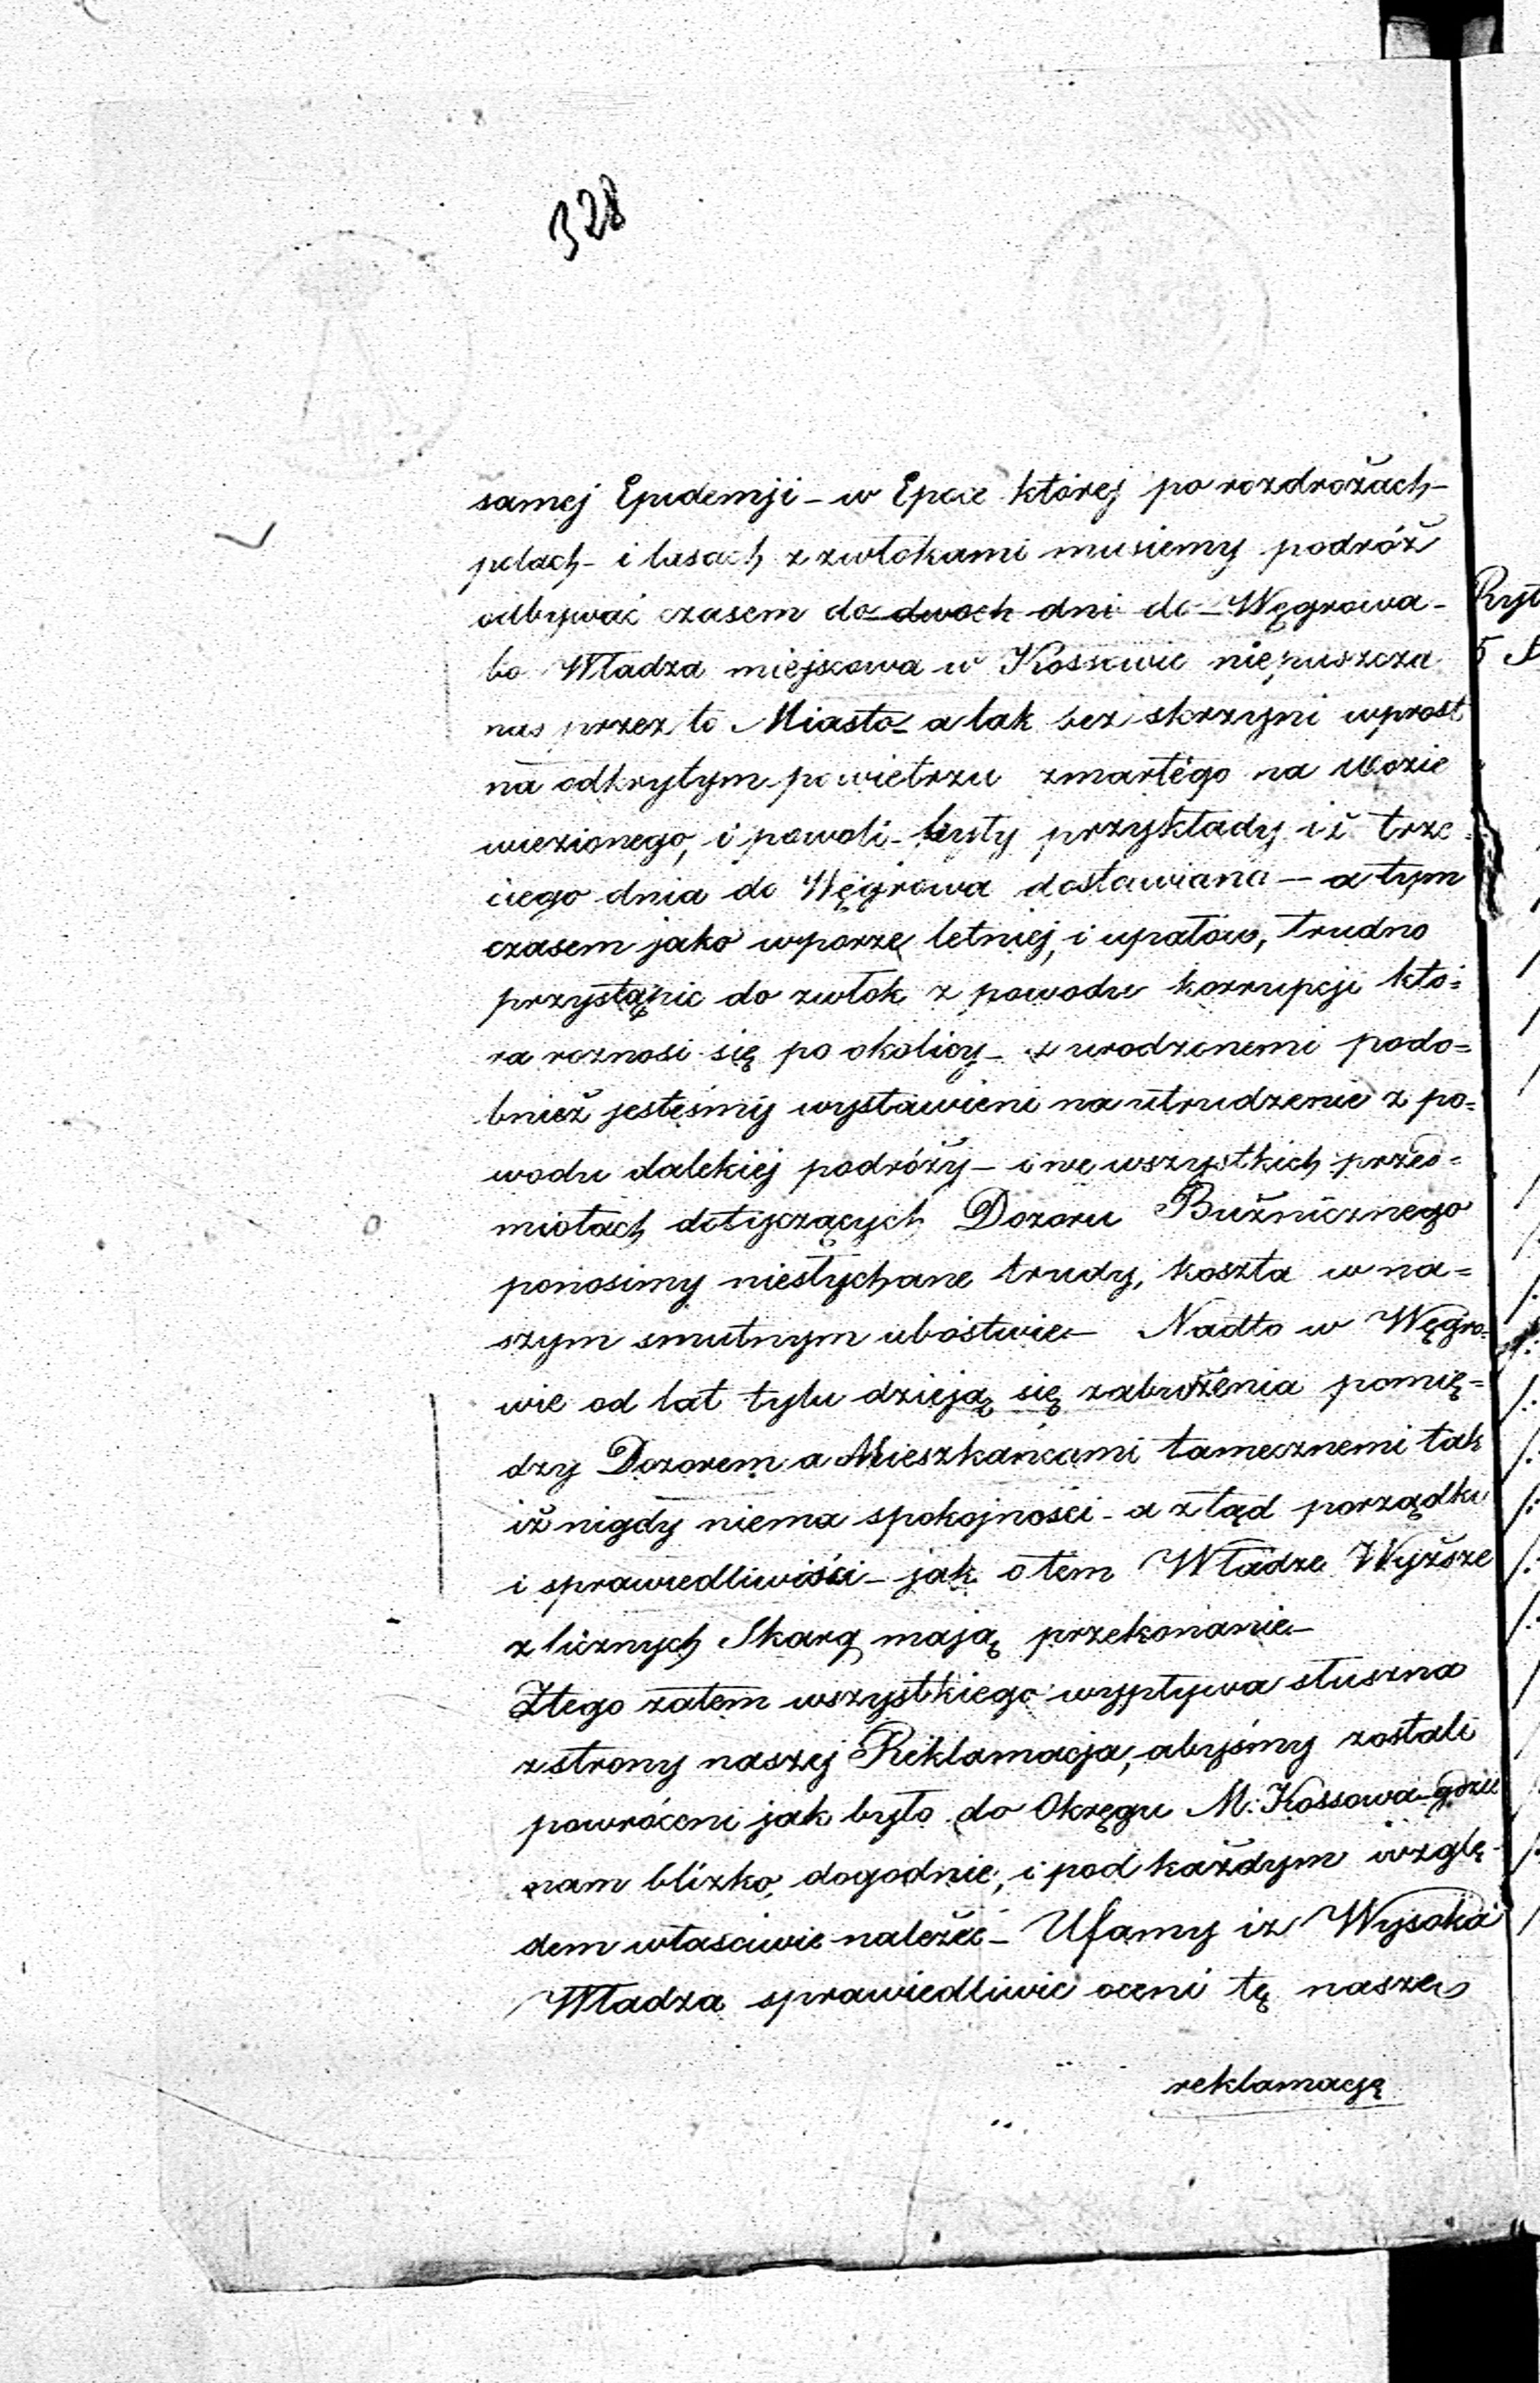 328
samej Epidemji – w Epoce której po rozdrożach –
polach – i lasach z zwłokami musiemy podróż
odbywać czasem do dwoch dni do – Węgrowa –
bo Władza miejscowa w Kossowie niepuszcza
nas przez to Miasto – a tak bez skrzyni wprost
na odkrytym powietrzu zmartego na wozie
wiezionego, i powoli – były przykłady iż trze=
ciego dnia do Węgrowa dostawiano – a tym
czasem jako wporze letniej, i upałow, trudno
przystąpic do zwłok z powodu korrupcji któ=
ra roznosi się po okolicy – z urodzonemi podo=
bnież jesteśmy wystawieni na utrudzenie z po=
wodu dalekiej podróży – i we wszystkich przed=
miotach dotyczących Dozoru Bużnicznego
ponosimy niesłychane trudy, koszta w na=
szym smutnym ubóstwie – Nadto w Węgro=
wie od lat tylu dzieją się zaburzenia pomię=
dzy Dozorem a Mieszkańcami tamecznemi tak
iż nigdy niema spokojności – a ztąd porządku
i sprawiedliwości – jak o tem Władze Wyższe
z licznych Skarg mają przekonanie –
Ztego zatem wszystkiego wypływa słuszna
z strony naszej Reklamacja, abyśmy zostali
powróceni jak było do Okręgu M. Kossowa – gdzie
nam blizko, dogodnie, i pod każdym wzglę=
dem właściwie należeć – Ufamy iż Wysoka
Władza sprawiedliwie oceni tę nasze
reklamację